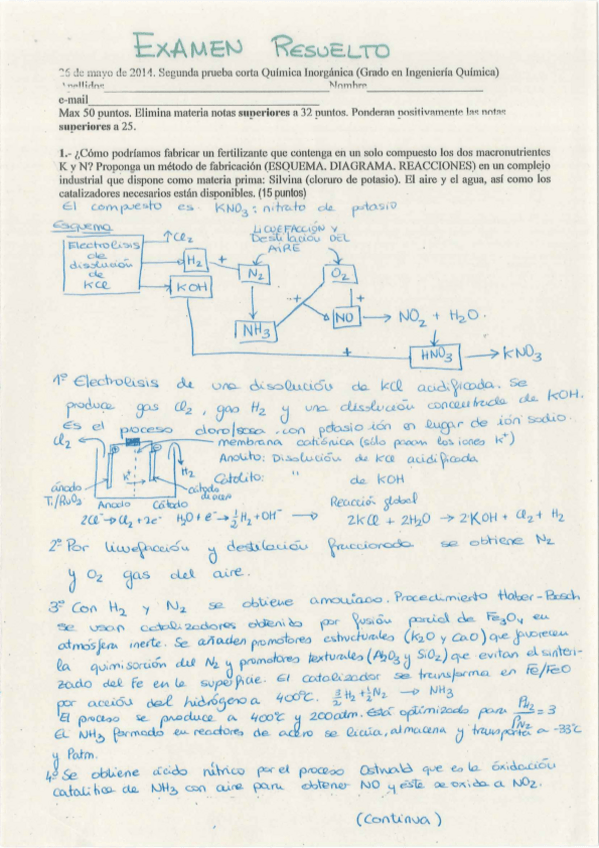 EXAMEN RESUELTO
26 de mayo de 2014. Segunda prueba corta Química Inorgánica (Grado en Ingeniería Química)
Apellidos Nombre
e-mail
Max 50 puntos. Elimina materia notas superiores a 32 puntos. Ponderan positivamente las notas
superiores a 25.
1.- ¿Cómo podríamos fabricar un fertilizante que contenga en un solo compuesto los dos macronutrientes
K y N? Proponga un método de fabricación (ESQUEMA. DIAGRAMA. REACCIONES) en un complejo
industrial que dispone como materia prima: Silvina (cloruro de potasio). El aire y el agua, así como los
catalizadores necesarios están disponibles. (15 puntos)
El compuesto es KNO3: nitrato de potasio
ESQUEMA
Electrolisis
de
disolución
de
KCl
↑Cl2
H2
KOH
+
LICUEFACCIÓN Y
DESTILACIÓN DEL
AIRE
N2
O2
+
+
NH3
NO → NO2 + H2O.
+
HNO3 → KNO3
1º Electrolisis de una disolución de KCl acidificada. Se
produce gas Cl2, gas H2 y una disolución concentrada de KOH.
Es el proceso cloro/sosa con potasio ión en lugar de ión sodio.
Cl2
membrana catiónica (sólo pasan los iones K+)
Anolito: Disolución de KCl acidificada
Catolito: " de KOH
H2
K+
ánodo
Ti/RuO2
cátodo
de acero
Anodo Cátodo
Reacción global
2Cl- → Cl2 + 2e- H2O + e- → 1/2 H2 + OH- → 2KCl + 2H2O → 2KOH + Cl2 + H2
2º Por licuefacción y destilación fraccionada se obtiene N2
y O2 gas del aire.
3º Con H2 y N2 se obtiene amoniaco. Procedimiento Haber-Bosch
se usan catalizadores obtenido por fusión parcial de Fe3O4 en
atmósfera inerte. Se añaden promotores estructurales (K2O y CaO) que favorecen
la quimisorción del N2 y promotores texturales (Al2O3 y SiO2) que evitan el sinteri-
zado del Fe en la superficie. El catalizador se transforma en Fe/FeO
por acción del hidrógeno a 400ºC. 3/2 H2 + 1/2 N2 → NH3
El proceso se produce a 400ºC y 200atm. Está optimizado para PH2/PN2 = 3
El NH3 formado en reactores de acero se licúa, almacena y transporta a -33ºC
y Patm.
4º Se obtiene ácido nítrico por el proceso Ostwald que es la oxidación
catalítica de NH3 con aire para obtener NO y éste se oxida a NO2.
(Continua)